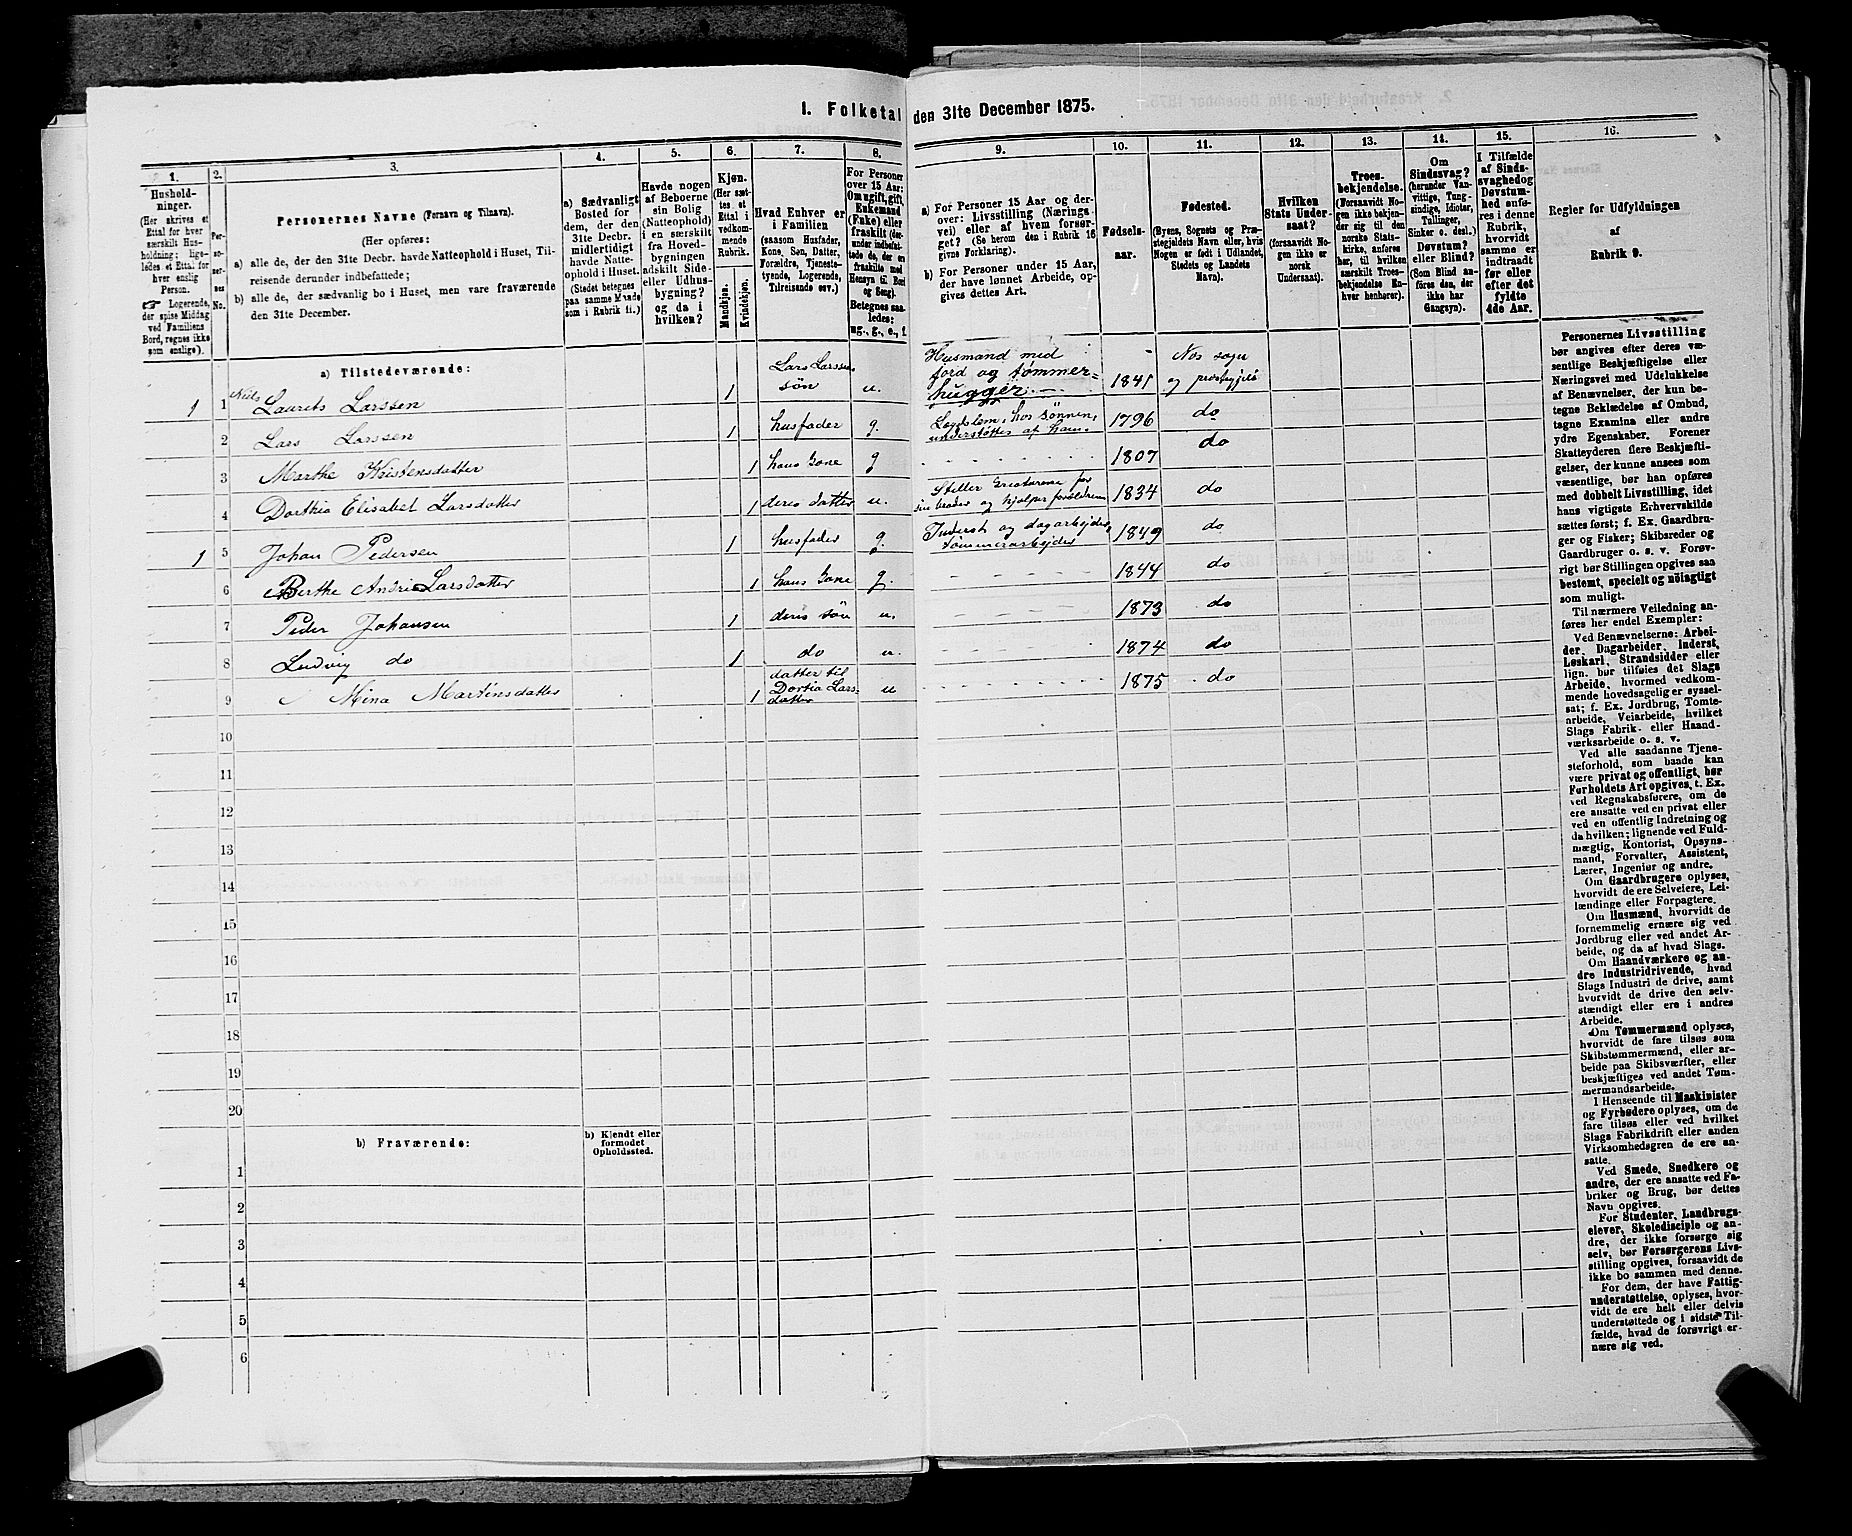 1. Folketal den 31te December 1875.
1.
Hushold-
ninger.
(Her skrives et
Ettal for hver
særskilt Hus-
holdning; lige-
ledes et Ettal for
hver enslig
Person.
☞ Logerende,
der spise Middag
ved Familiens
Bord, regnes ikke
som enslige).
2.
Per-
so-
ner-
nes
No.
3.
Personernes Navne (Fornavn og Tilnavn).
(Her opføres:
a) alle de, der den 31te Decbr. havde Natteophold i Huset, Til-
reisende derunder indbefattede;
b) alle de, der sædvanlig bo i Huset, men vare fraværende
den 31te December.
4.
a) Sædvanligt
Bosted for
dem, der den
31te Decbr.
midlertidigt
havde Natte-
ophold i Huset.
(Stedet betegnes
paa samme Maade
som i Rubrik 11.)
5.
Havde nogen
af Beboerne
sin Bolig
(Natteophold)
i en særskilt
fra Hoved-
bygningen
adskilt Side-
eller Udhus-
bygning? da i
hvilken?
6.
Kjøn.
(Her sæt-
tes et
Ettal i
vedkom-
mende
Rubrik.
Mandkjøn.
Kvindekjøn.
7.
Hvad Enhver er
i Familien
(saasom Husfader,
Kone, Søn, Datter,
Forældre, Tjeneste-
tyende, Logerende,
Tilreisende osv.)
8.
For Personer
over 15 Aar:
Om ugift, gift,
Enkemand
(Enke) eller
fraskilt (der-
under indbefat-
tede de, der ere
fraskilte med
Hensyn til Bord
og Seng).
Betegnes saa-
ledes:
ug., g., e., f.
9.
a) For Personer 15 Aar og der-
over: Livsstilling (Nærings-
vei) eller af hvem forsør-
get? (Se herom den i Rubrik 16
givne Forklaring).
b) For Personer under 15 Aar,
der have lønnet Arbeide, op-
gives dettes Art.
10.
Fødsels-
aar.
11.
Fødested.
(Byens, Sognets og Præ-
stegjeldets Navn eller, hvis
Nogen er født i Udlandet,
Stedets og Landets
Navn).
12.
Hvilken
Stats Under-
saat?
(forsaavidt No-
gen ikke er
norsk
Undersaat).
13.
Troes-
bekjendelse.
(Forsaavidt No-
gen ikke bekjen-
der sig til den
norske Stats-
kirke, anføres
her, til hvilken
særskilt Troes-
bekjendelse En-
hver henhører).
14.
Om
Sindssvag?
(herunder Van-
vittige, Tung-
sindige, Idioter,
Tullinger,
Sinker o. desl.)
Døvstum?
eller Blind?
(Som Blind an-
føres den, der
ikke har
Gangsyn).
15.
I Tilfælde
af Sinds-
svaghed og
Døvstum-
hed anfø-
res i denne
Rubrik,
hvorvidt
samme er
indtraadt
før eller
efter det
fyldte
4de Aar.
16.
Regler for Udfyldningen
af
Rubrik 9.
a) Tilstedeværende:
1 1 Niels Laurets Larssen 1 Lars Larssens søn u. Husmand med jord og tømmer-hugger 1841 Nes sogn og præstegjeld
2 Lars Larssen 1 husfader g. hos sønnen, understøttes af ham. 1796 do
3 Marthe Kristensdatter 1 hans kone g 1807 do
4 Dorthia Elisabet Larsdatter 1 deris datter u. Steller Kreaturene for sin broder og hjelper forældrene 1834 do
1 5 Johan Pedersen 1 husfader g. Inderst og dagarbejder, tømmerarbejder 1849 do
6 Berthe Andrie Larsdatter 1 hans kone g. 1844 do
7 Peder Johansen 1 deris søn u. 1873 do
8 Ludvig do 1 do u. 1874 do
9 Mina Martinsdatter 1 datter til Dortia Lars-datter u 1875 do
10
11
12
13
14
15
16
17
18
19
20
b) Fraværende:
b) Kjendt eller
formodet
Opholdssted.
1
2
3
4
5
6
Personernes Livsstilling
bør angives efter deres væ-
sentlige Beskjæftigelse eller
Næringsvei med Udelukkelse
af Benævnelser, der kun be-
tegne Beklædelse af Ombud,
tagne Examina eller andre
ydre Egenskaber. Forener
Skatteyderen flere Beskjæfti-
gelser, der kunne ansees som
væsentlige, bør han opføres
med dobbelt Livsstilling, idet
hans vigtigste Erhvervskilde
sættes først; f. Ex. Gaardbru-
ger og Fisker; Skibsreder og
Gaardbruger o. s. v. Forøv-
rigt bør Stillingen opgives saa
bestemt, specielt og nöiagtigt
som muligt.
Til nærmere Veiledning an-
føres her endel Exempler:
Ved Benævnelserne: Arbei-
der, Dagarbeider, Inderst,
Løskarl, Strandsidder eller
lign. bør tilføies det Slags
Arbeide, hvormed vedkom-
mende hovedsagelig er syssel-
sat; f. Ex. Jordbrug, Tomte-
arbeide, Veiarbeide, hvilket
Slags Fabrik- eller Haand-
værksarbeide o. s. v.
Ved alle saadanne Tjene-
steforhold, som baade kan
være privat og offentligt, bør
Forholdets Art opgives, t. Ex.
ved Regnskabsførere, om de
ere ansatte ved en privat eller
ved en offentlig Indretning og
da hvilken; lignende ved Fuld-
mægtig, Kontorist, Opsyns-
mand, Forvalter, Assistent,
Lærer, Ingeniør og andre.
Om Gaardbrugere oplyses,
hvorvidt de ere Selveiere, Lei-
lændinge eller Forpagtere.
Om Husmænd, hvorvidt de
fornemmelig ernære sig ved
Jordbrug eller ved andet Ar-
beide, og da af hvad Slags.
Om Haandværkere og an-
dre Industridrivende, hvad
Slags Industri de drive, samt
hvorvidt de drive den selv-
stændigt eller ere i andres
Arbeide.
Om Tømmermænd oplyses,
hvorvidt de fare tilsøs som
Skibstømmermænd, eller ar-
beide paa Skibsværfter, eller
beskjæftiges ved andet Tøm-
mermandsarbeide.
I Henseende til Maskinister
og Fyrbødere oplyses, om de
fare tilsøs eller ved hvilket
Slags Fabrikdrift eller anden
Virksomhedsgren de ere an-
satte.
Ved Smede, Snedkere og
andre, der ere ansatte ved Fa-
briker og Brug, bør dettes
Navn opgives.
For Studenter, Landbrugs-
elever, Skoledisciple og an-
dre, der ikke forsørge sig
selv, bør Forsørgerens Livs-
stilling opgives, forsaavidt de
ikke bo sammen med denne.
For dem, der have Fattig-
understøttelse, oplyses, hvor-
vidt de ere helt eller delvis
understøttede og i sidste Til-
fælde, hvad de forøvrigt er-
nære sig ved.